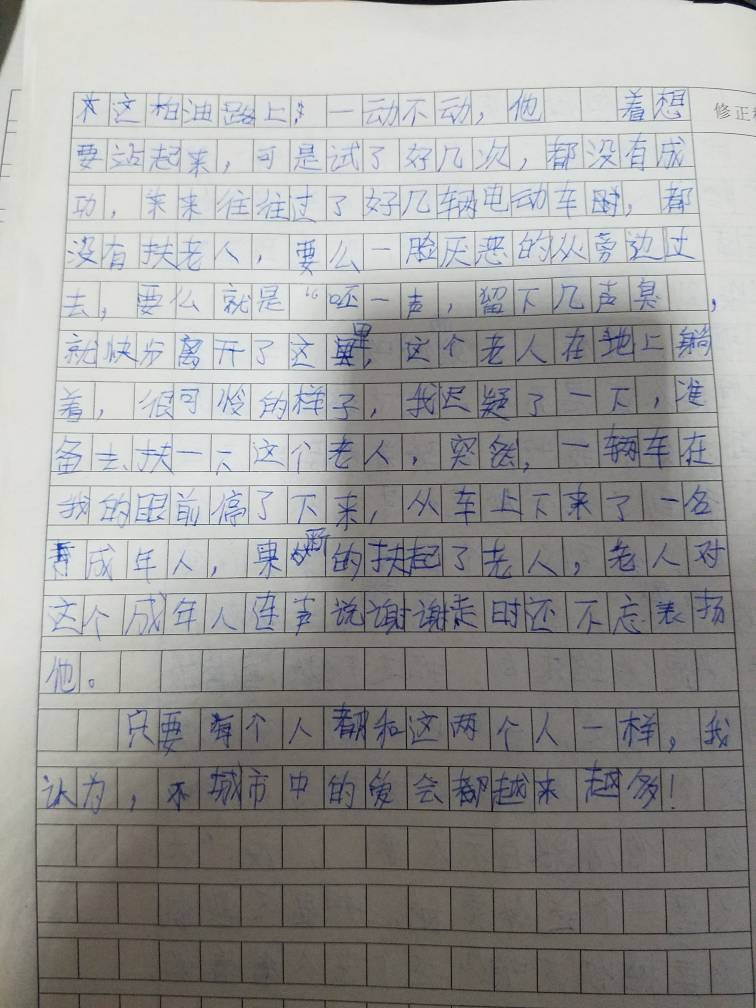 这柏油路上，一动不动，他 着想
修正
要站起来，可是试了好几次，都没有成
功，来来往往过了好几辆电动车时，都
没有扶老人，要么一脸厌恶的从旁边过
去，要么就是“呸一声，留下几声臭 ，
就快步离开了这里，这个老人在地上躺
着，很可怜的样子，我迟疑了一下，准
备去扶一下这个老人，突然，一辆车在
我的眼前停了下来，从车上下来了一名
成年人，果断的扶起了老人，老人对
这个成年人连声说谢谢走时还不忘表扬
他。
只要每个人都和这两个人一样，我
认为，城市中的爱会都越来越多！